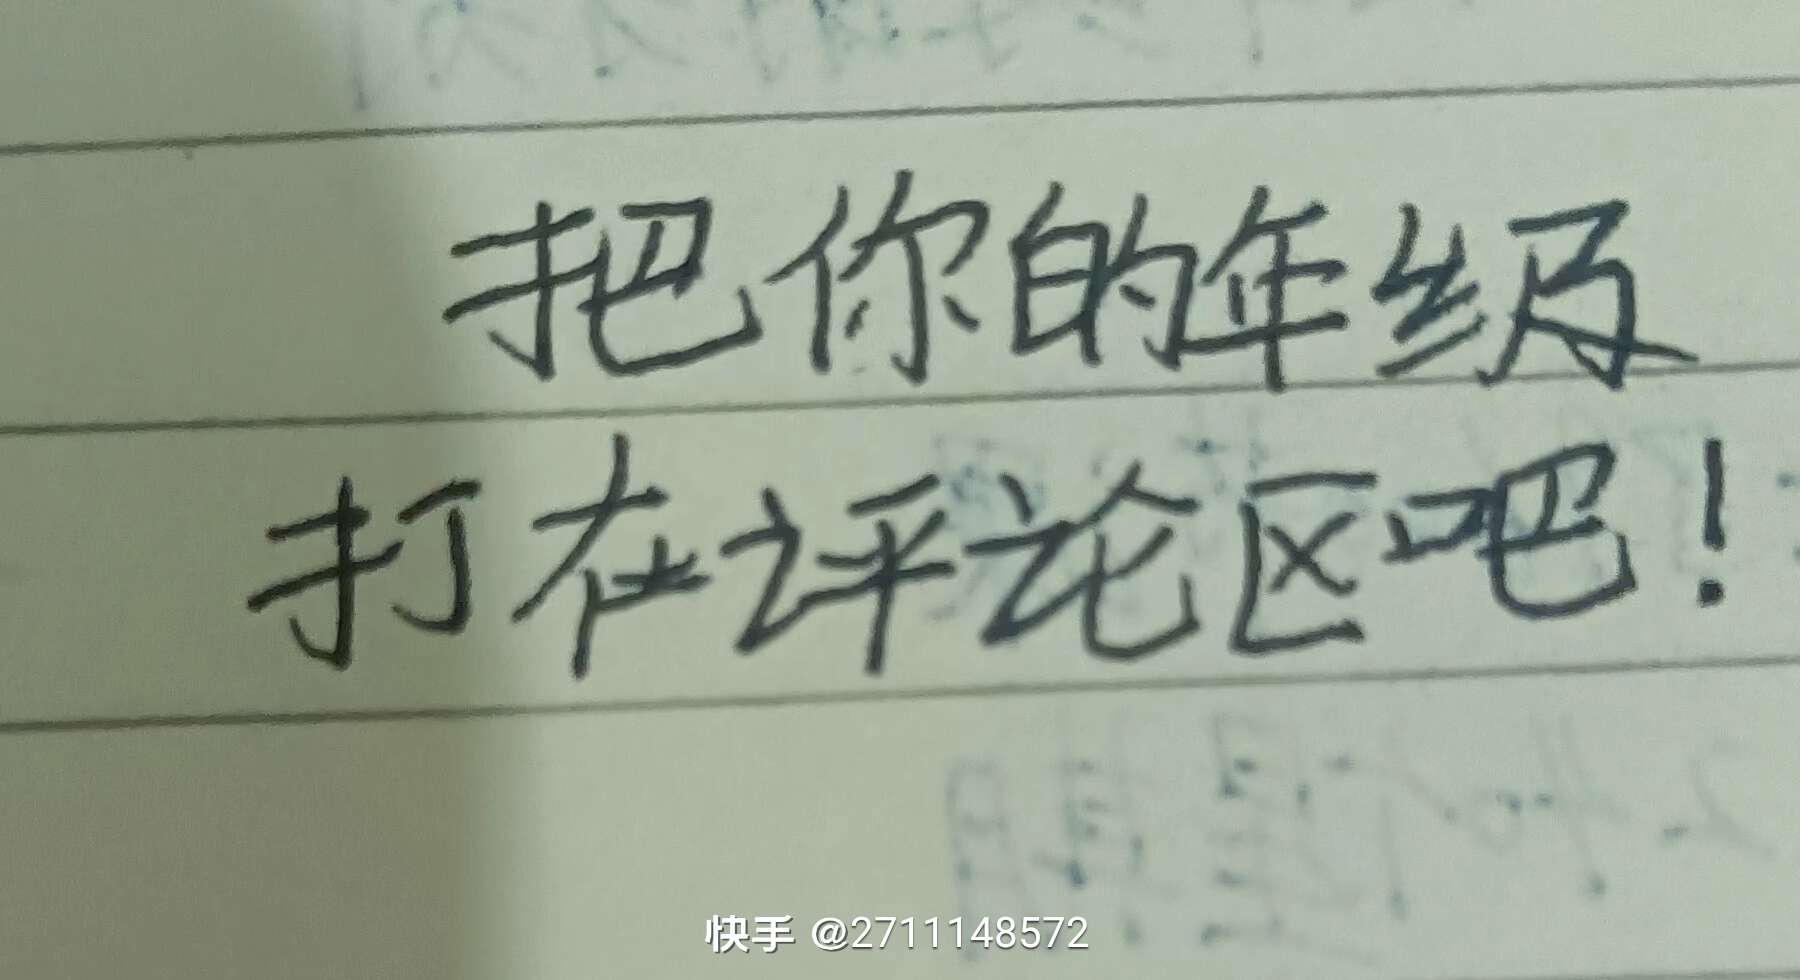 把你的年级
打在评论区吧！
快手 @2711148572